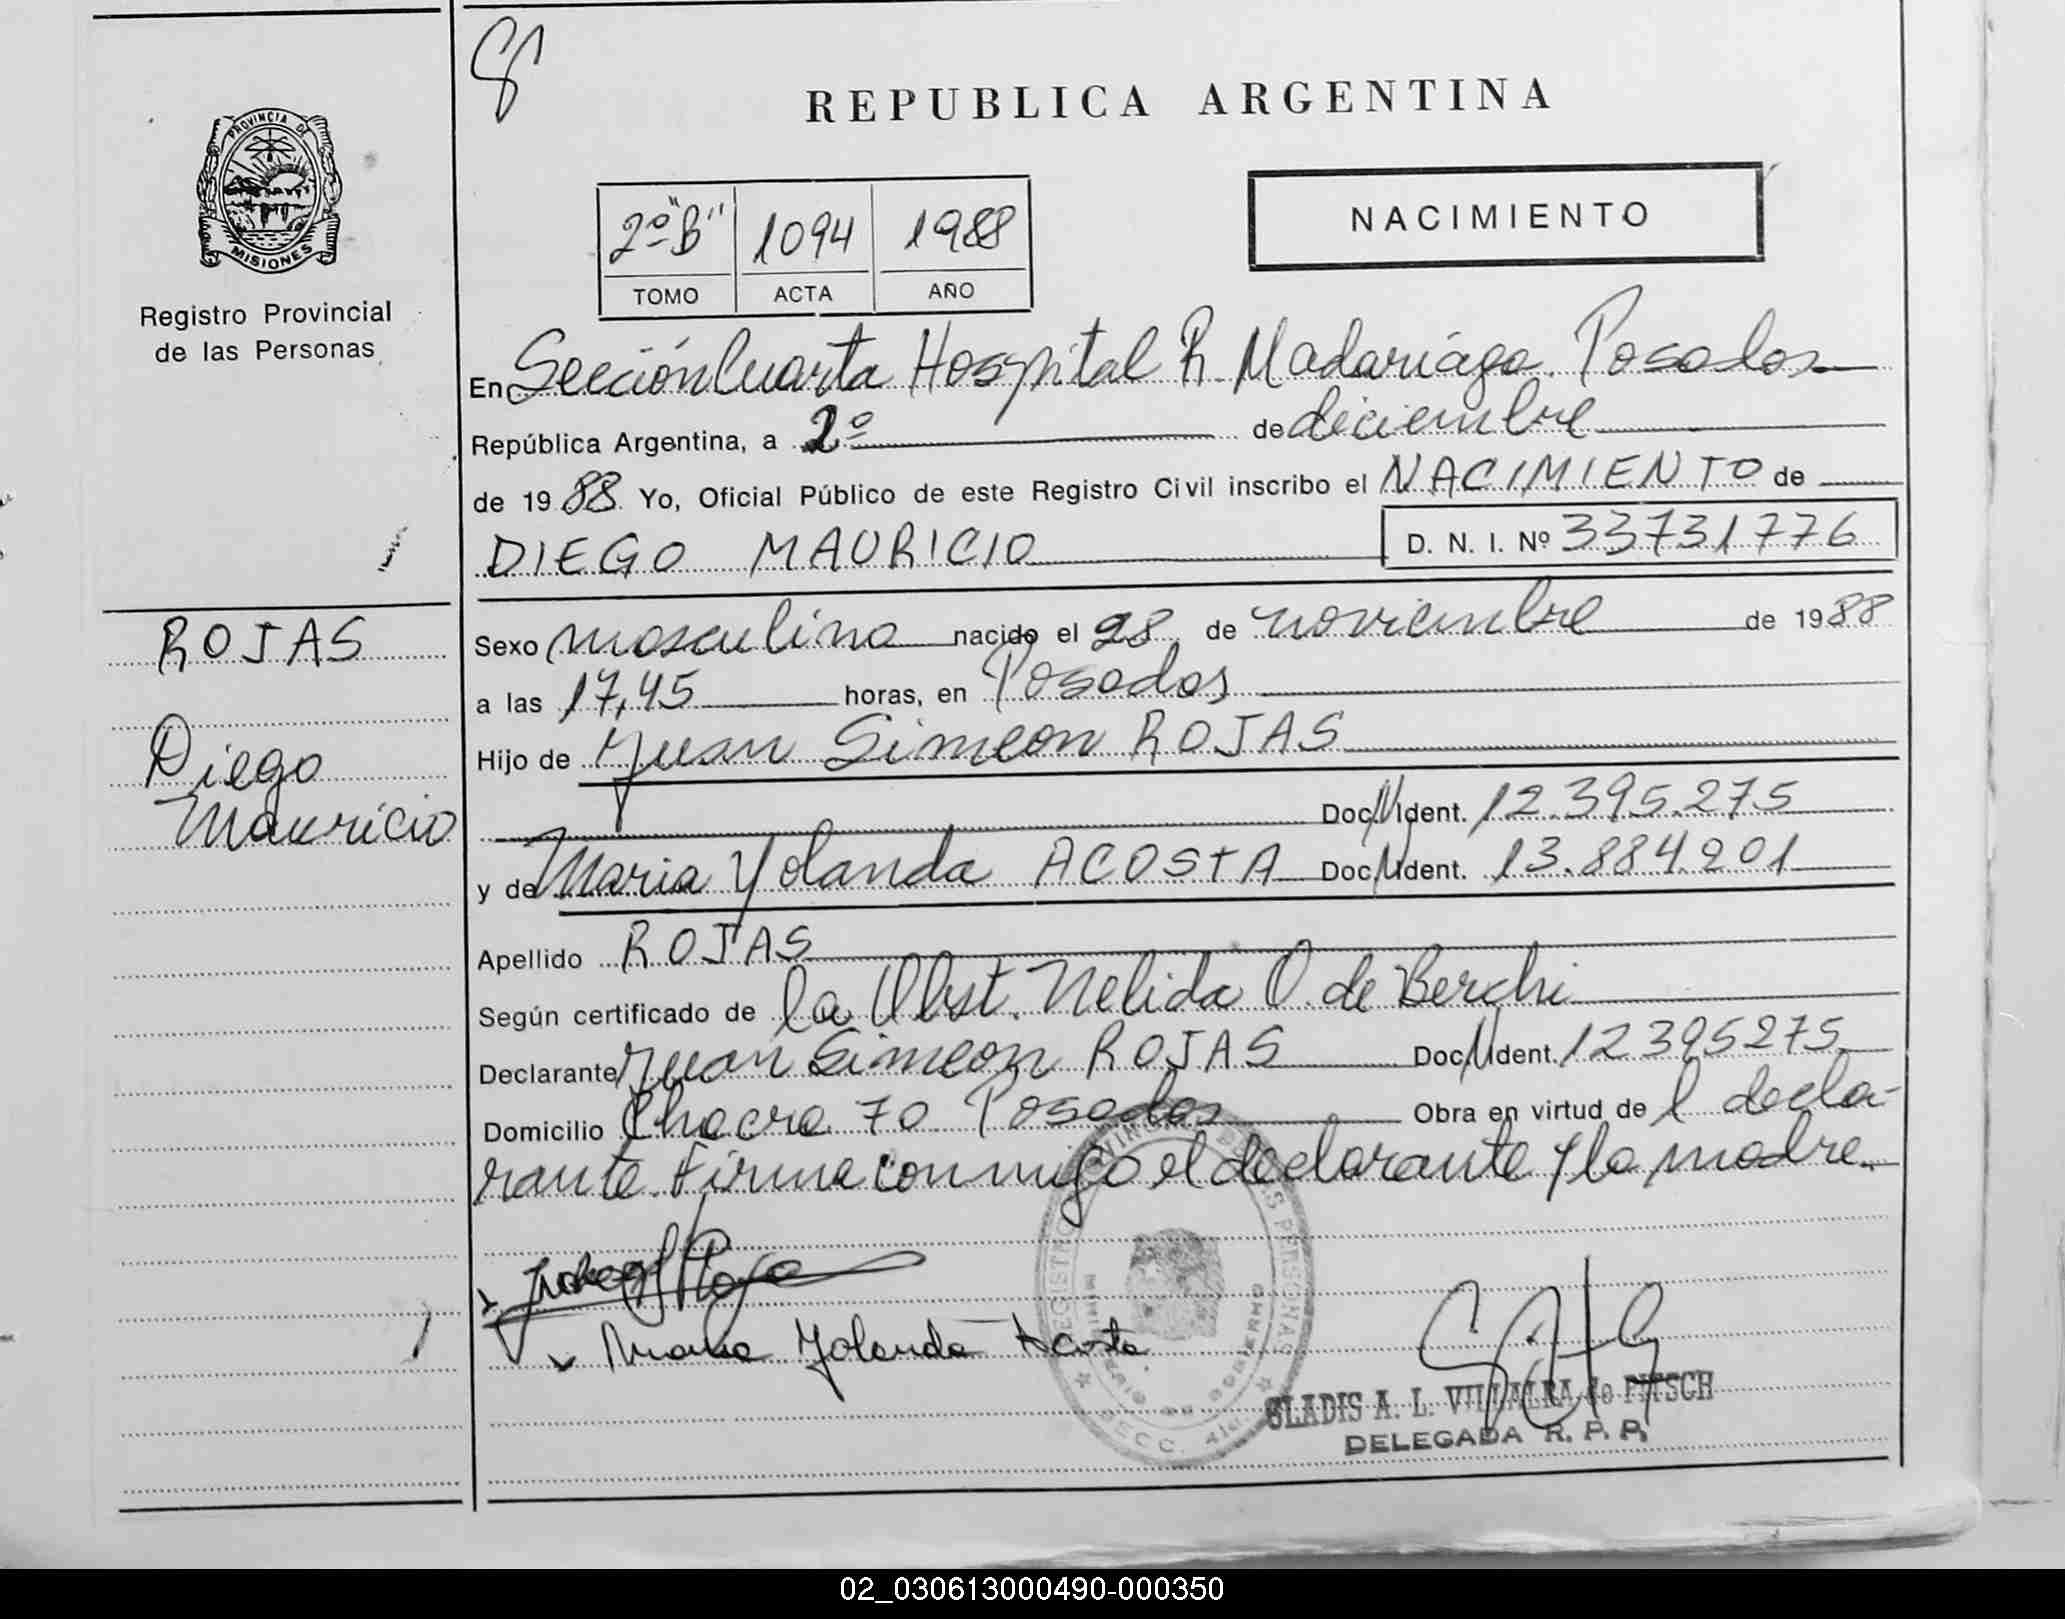 REPUBLICA ARGENTINA
PROVINCIA DE
MISIONES
Registro Provincial
de las Personas
2º "B" 1094 1988
TOMO ACTA AÑO
NACIMIENTO
En Sección Cuarta Hospital R. Madariaga. Posadas
República Argentina, a 2º de diciembre
de 1988 Yo, Oficial Público de este Registro Civil inscribo el NACIMIENTO de
DIEGO MAURICIO D. N. I. Nº 33731776
ROJAS
Diego
Mauricio
Sexo masculino nacido el 28 de noviembre de 1988
a las 17,45 horas, en Posadas
Hijo de Juan Simeon ROJAS
Doc. Ident. 12.395.275
y de Maria Yolanda ACOSTA Doc. Ident. 13.884.201
Apellido ROJAS
Según certificado de la Obst. Nelida O. de Berchi
Declarante Juan Simeon ROJAS Doc. Ident. 12395275
Domicilio Chacra 70 Posadas Obra en virtud de l decla-
rante. Firma conmigo el declarante y la madre.
Maria Yolanda Acosta
GLADIS A. L. VILLALBA de PITSCH
DELEGADA R. P. P.
02_030613000490-000350